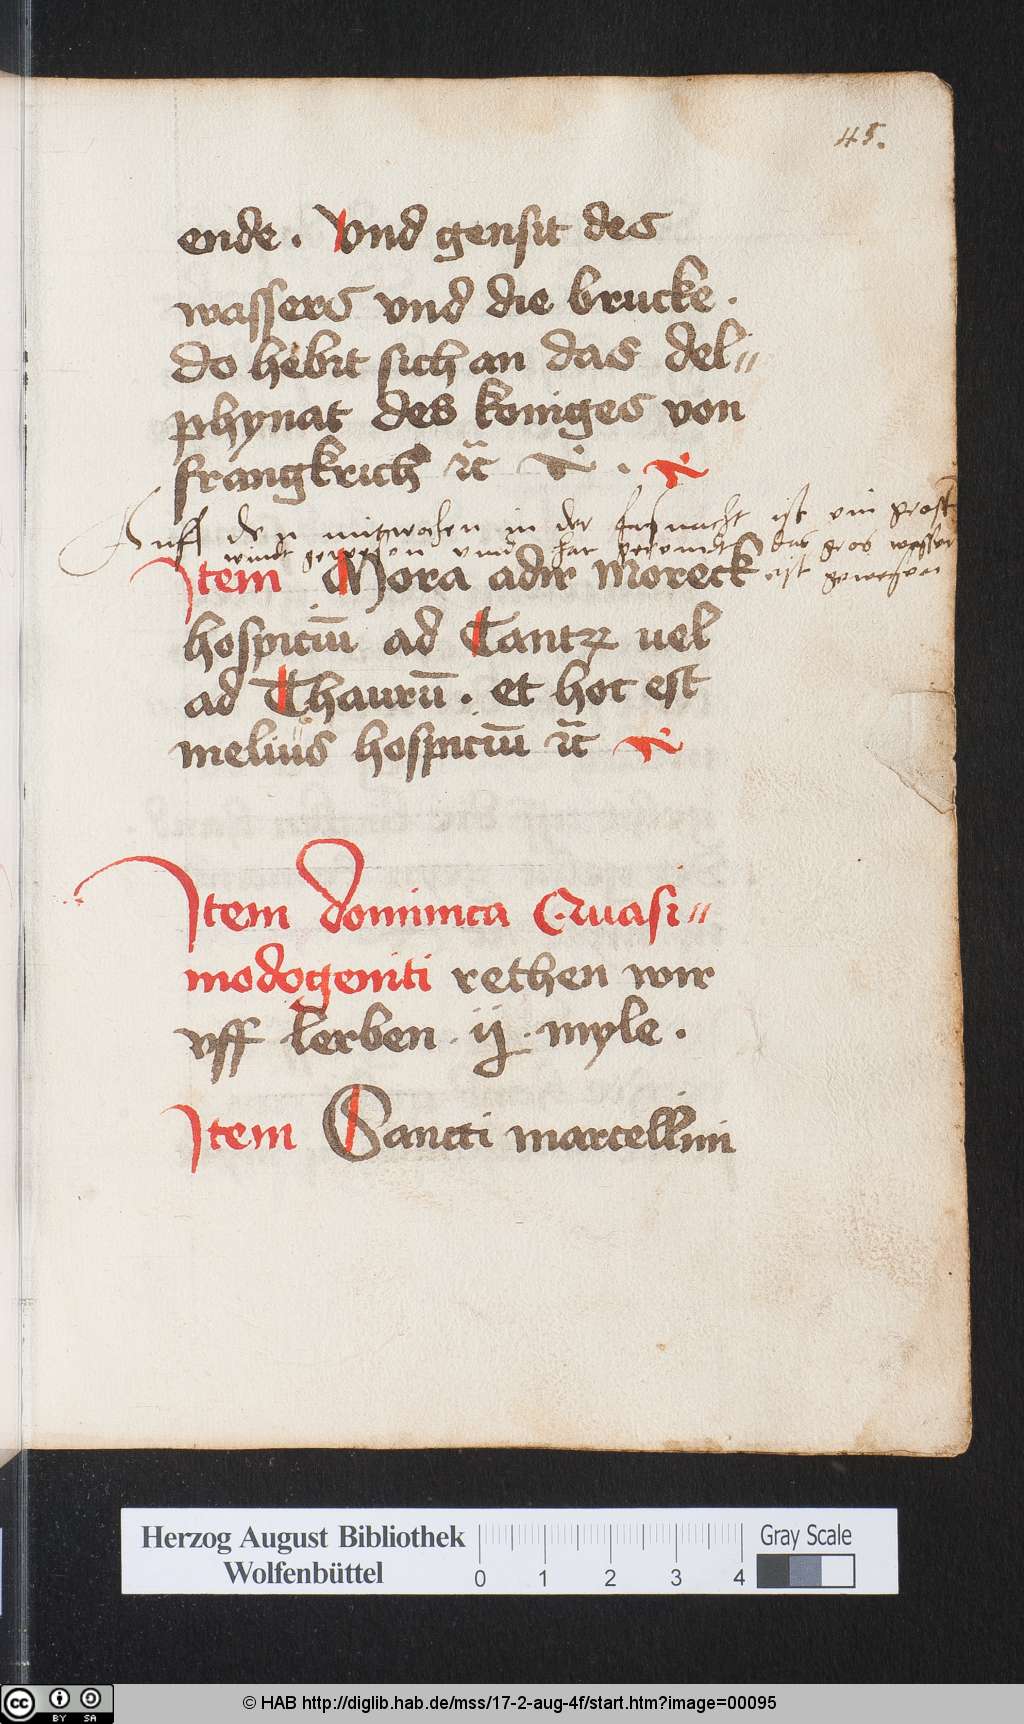 45.
ende . Vnd gensit des
wassers vnd die brucke .
do hebit sich an das del⸗
phynat des koniges von
frangkrich ꝛc̃
Auff den mitwochen in der fasnacht ist ein gross
windt gewesen vnnd hat das gros wasser
ist gewesen
Item Mora adir moreck
hospiciū ad Cantꝝ uel
ad Thaurū . et hoc est
melius hospiciū ꝛc̃
Item dominica Quasi⸗
modogeniti rethen wir
vff lerben . ij . myle .
Item Sancti marcellini
Herzog August Bibliothek
Wolfenbüttel
0 1 2 3 4
Gray Scale
cc BY SA
© HAB http://diglib.hab.de/mss/17-2-aug-4f/start.htm?image=00095